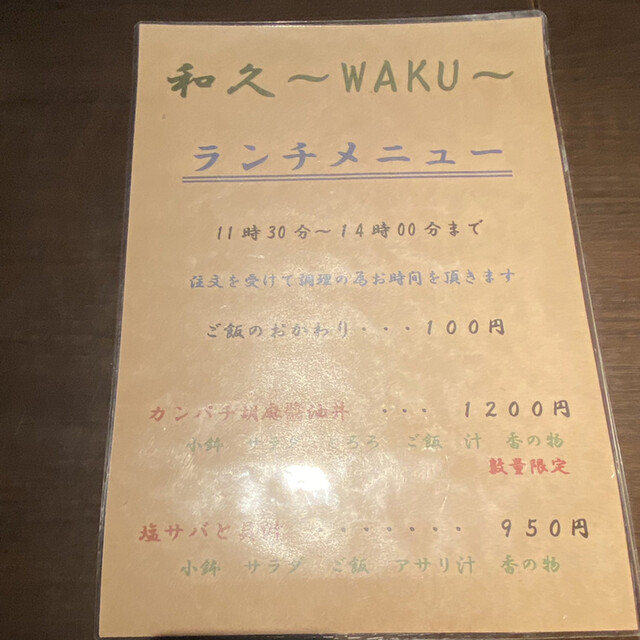 和久～WAKU～
ランチメニュー
11時30分～14時00分まで
注文を受けて調理の為お時間を頂きます
ご飯のおかわり・・・100円
カンパチ胡麻醤油丼 ・・・ 1200円
小鉢 サラダ とろろ ご飯 汁 香の物
数量限定
塩サバと ・・・・・・・ 950円
小鉢 サラダ ご飯 アサリ汁 香の物